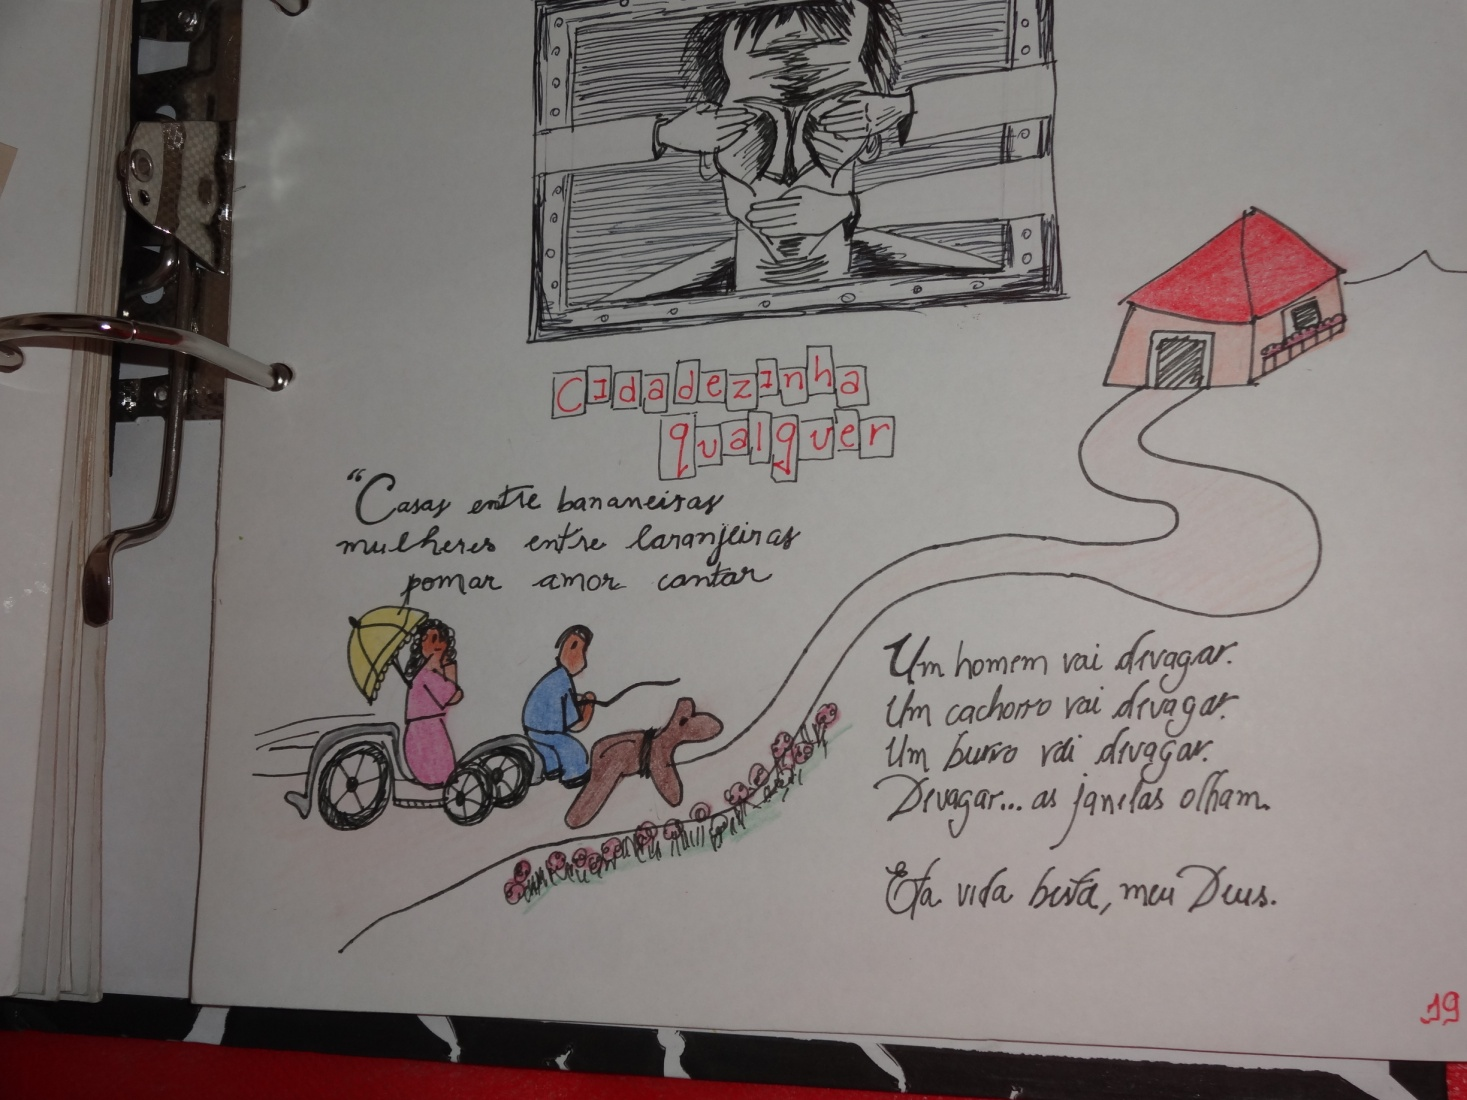 Cidadezinha
qualquer
“Casas entre bananeiras
mulheres entre laranjeiras
pomar amor cantar
Um homem vai devagar.
Um cachorro vai devagar.
Um burro vai devagar.
Devagar... as janelas olham.
Eta vida besta, meu Deus.
19